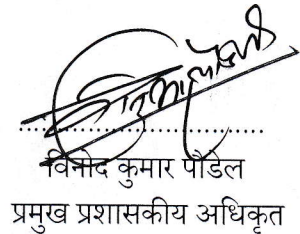 विनोद कुमार पौडेल
प्रमुख प्रशासकीय अधिकृत